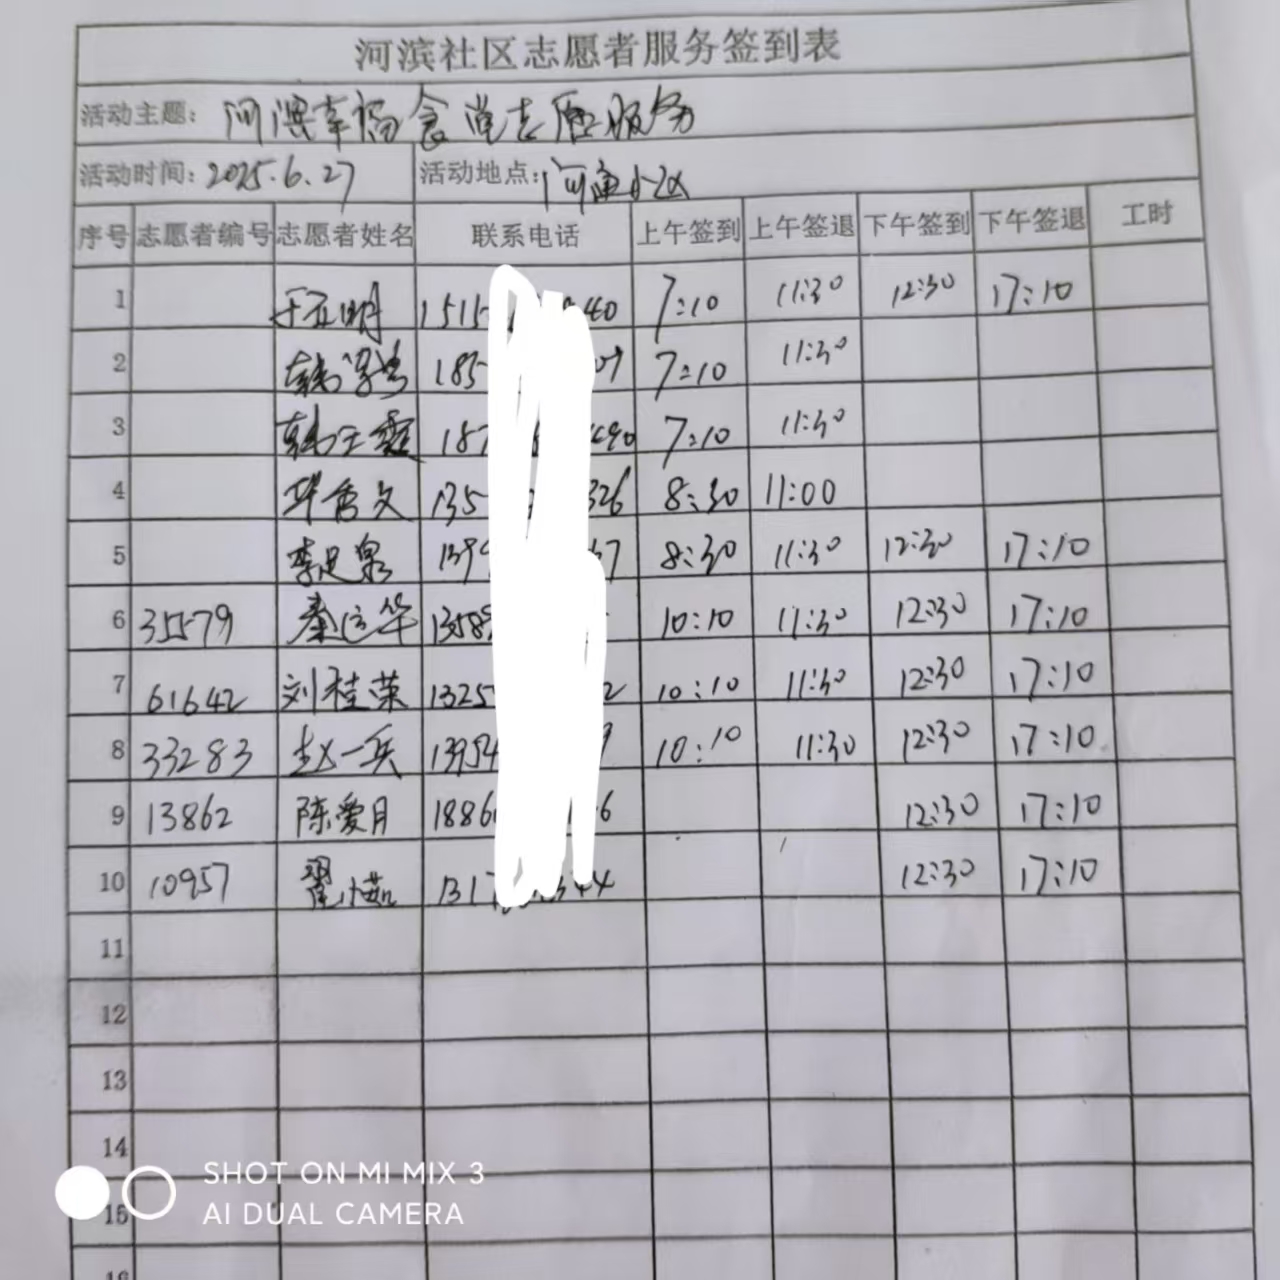 河滨社区志愿者服务签到表
活动主题: 河滨幸福食堂志愿服务
活动时间: 2025.6.27 活动地点: 河滨小区
序号 志愿者编号 志愿者姓名 联系电话 上午签到 上午签退 下午签到 下午签退 工时
1 1515 40 7:10 11:30 12:30 17:10
2 185 7:10 11:30
3 187 490 7:10 11:30
4 135 326 8:30 11:00
5 139 67 8:30 11:30 12:30 17:10
6 35579 秦运华 1358 10:10 11:30 12:30 17:10
7 61642 刘桂荣 1325 2 10:10 11:30 12:30 17:10
8 33283 赵一兵 13954 9 10:10 11:30 12:30 17:10
9 13862 陈爱月 1886 6 12:30 17:10
10 10957 翟小茹 131 44 12:30 17:10
11
12
13
14
15
SHOT ON MI MIX 3
AI DUAL CAMERA